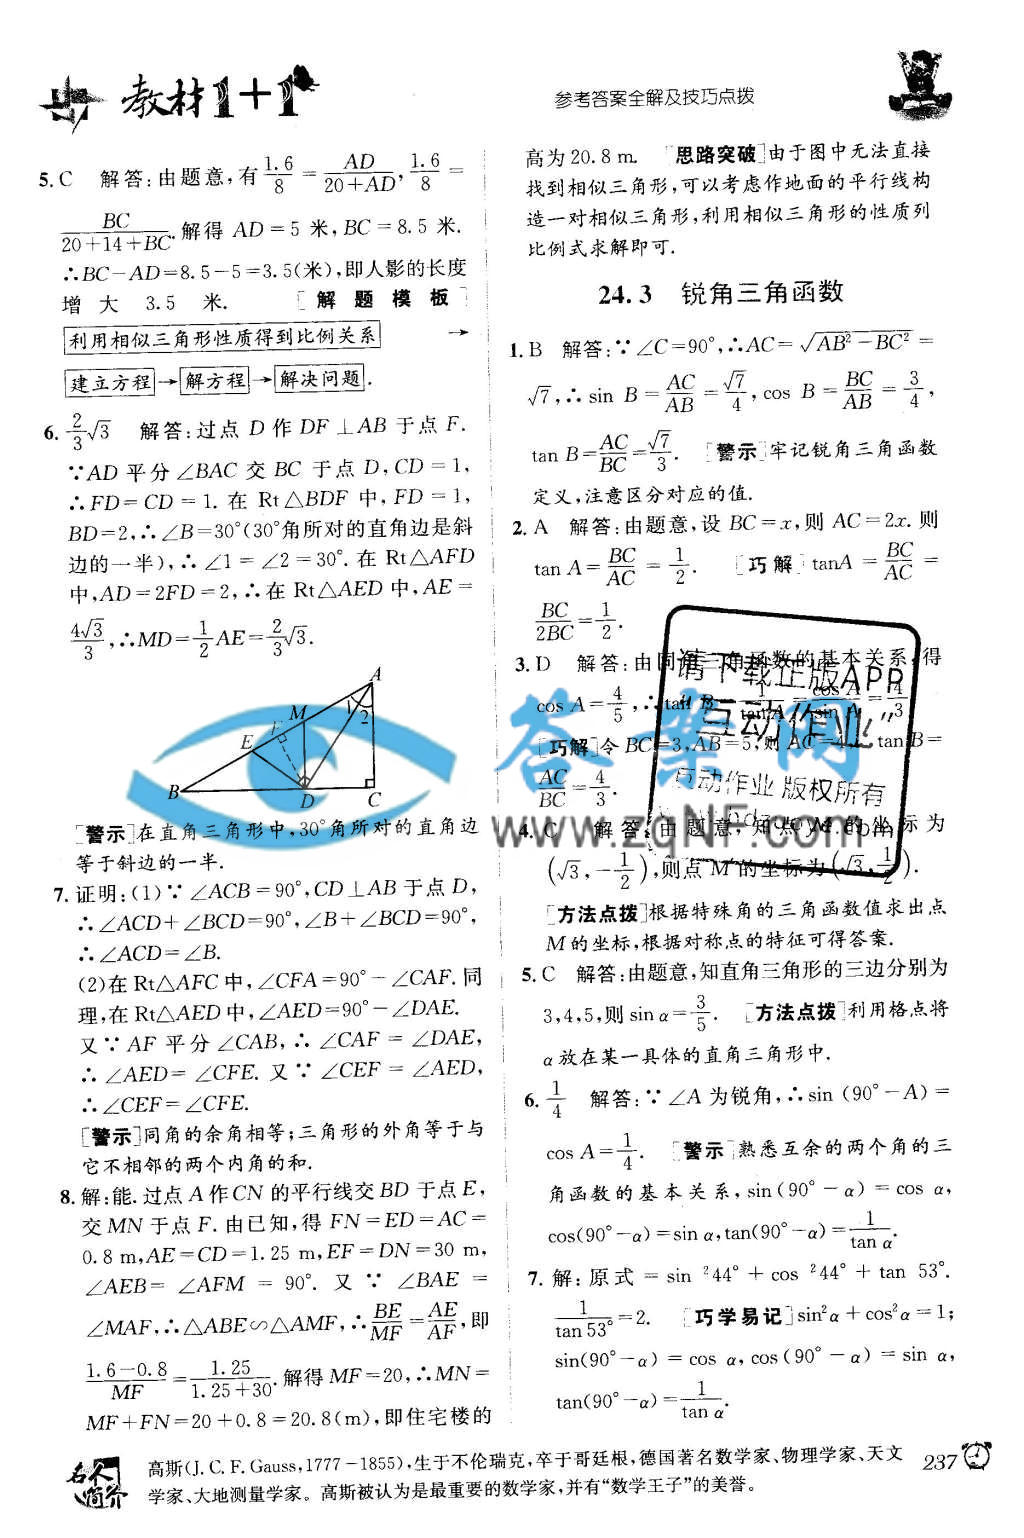 教材1+1
参考答案全解及技巧点拨
5. C 解答:由题意,有1.6/8=AD/(20+AD),1.6/8=
BC/(20+14+BC).解得 AD=5 米,BC=8.5 米.
∴BC-AD=8.5-5=3.5(米),即人影的长度
增大 3.5 米. [解题模板]
利用相似三角形性质得到比例关系→
建立方程→解方程→解决问题.
6. 2/3√3 解答:过点 D 作 DF⊥AB 于点 F.
∵AD 平分∠BAC 交 BC 于点 D,CD=1,
∴FD=CD=1. 在 Rt△BDF 中,FD=1,
BD=2,∴∠B=30°(30°角所对的直角边是斜
边的一半),∴∠1=∠2=30°. 在 Rt△AFD
中,AD=2FD=2,∴在 Rt△AED 中,AE=
4√3/3,∴MD=1/2AE=2/3√3.
A
1
2
M
F
E
B
D
C
[警示]在直角三角形中,30°角所对的直角边
等于斜边的一半.
7. 证明:(1)∵∠ACB=90°,CD⊥AB 于点 D,
∴∠ACD+∠BCD=90°,∠B+∠BCD=90°,
∴∠ACD=∠B.
(2)在 Rt△AFC 中,∠CFA=90°-∠CAF. 同
理,在 Rt△AED 中,∠AED=90°-∠DAE.
又∵AF 平分∠CAB,∴∠CAF=∠DAE,
∴∠AED=∠CFE. 又∵∠CEF=∠AED,
∴∠CEF=∠CFE.
[警示]同角的余角相等;三角形的外角等于与
它不相邻的两个内角的和.
8. 解:能. 过点 A 作 CN 的平行线交 BD 于点 E,
交 MN 于点 F. 由已知,得 FN=ED=AC=
0.8 m,AE=CD=1.25 m,EF=DN=30 m,
∠AEB=∠AFM=90°. 又∵∠BAE=
∠MAF,∴△ABE∽△AMF,∴BE/MF=AE/AF,即
(1.6-0.8)/MF=1.25/(1.25+30). 解得 MF=20,∴MN=
MF+FN=20+0.8=20.8(m),即住宅楼的
高为 20.8 m. [思路突破]由于图中无法直接
找到相似三角形,可以考虑作地面的平行线构
造一对相似三角形,利用相似三角形的性质列
比例式求解即可.
24.3 锐角三角函数
1. B 解答:∵∠C=90°,∴AC=√(AB²-BC²)=
√7,∴sin B=AC/AB=√7/4,cos B=BC/AB=3/4,
tan B=AC/BC=√7/3. [警示]牢记锐角三角函数
定义,注意区分对应的值.
2. A 解答:由题意,设 BC=x,则 AC=2x. 则
tan A=BC/AC=1/2. [巧解]tanA=BC/AC=
BC/2BC=1/2.
3. D 解答:由同角三角函数的基本关系,得
cos A=4/5,∴tan B=1/tan A=cos A/sin A=4/3.
[巧解]令 BC=3,AB=5,则 AC=4,tan B=
AC/BC=4/3.
4. C 解答:由题意,知点 M 的坐标为
(√3,-1/2),则点 M′的坐标为(√3,1/2).
[方法点拨]根据特殊角的三角函数值求出点
M的坐标,根据对称点的特征可得答案.
5. C 解答:由题意,知直角三角形的三边分别为
3,4,5,则 sin α=3/5. [方法点拨]利用格点将
α放在某一具体的直角三角形中.
6. 1/4 解答:∵∠A 为锐角,∴sin (90°-A)=
cos A=1/4. [警示]熟悉互余的两个角的三
角函数的基本关系,sin(90°-α)=cos α,
cos(90°-α)=sin α,tan(90°-α)=1/tan α.
7. 解:原式=sin ²44°+cos ²44°+tan 53°.
1/tan 53°=2. [巧学易记]sin²α+cos²α=1;
sin(90°-α)=cos α,cos(90°-α)=sin α,
tan(90°-α)=1/tan α.
请下载正版APP
“互动作业”
互动作业 版权所有
答案网
www.zqNF.com
名人简介
高斯(J. C. F. Gauss,1777-1855),生于不伦瑞克,卒于哥廷根,德国著名数学家、物理学家、天文
学家、大地测量学家。高斯被认为是最重要的数学家,并有“数学王子”的美誉。
237